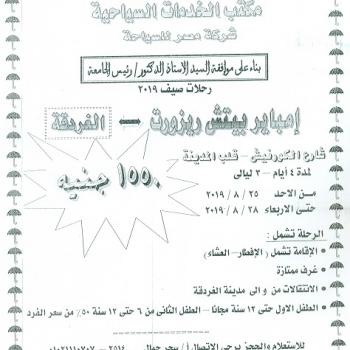 مكتب الخدمات السياحية
شركة مصر للسياحة
بناء على موافقة السيد الاستاذ الدكتور / رئيس الجامعة
رحلات صيف ٢٠١٩
إمباير بيتش ريزورت ← الغردقة
شارع الكورنيش - قلب المدينة
لمدة ٤ أيام - ٣ ليالى
١٥٥٠ جنيه
من الاحد ٢٥ / ٨ / ٢٠١٩
حتى الاربعاء ٢٨ / ٨ / ٢٠١٩
الرحلة تشمل :
• الإقامة تشمل (الإفطار - العشاء)
• غرف ممتازة
• الانتقالات من و الى مدينة الغردقة
• الطفل الاول حتى ١٢ سنة مجانا - الطفل الثانى من ٦ حتى ١٢ سنة ٥٠٪ من سعر الفرد
للإستعلام والحجز يرجى الاتصال